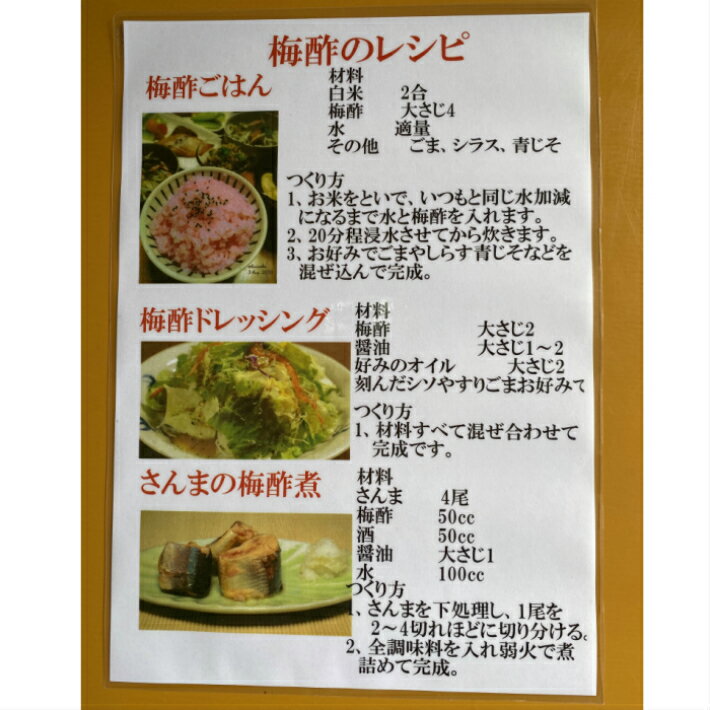 梅酢のレシピ
梅酢ごはん
材料
白米 2合
梅酢 大さじ4
水 適量
その他 ごま、シラス、青じそ
つくり方
1、お米をといで、いつもと同じ水加減
になるまで水と梅酢を入れます。
2、20分程浸水させてから炊きます。
3、お好みでごまやしらす青じそなどを
混ぜ込んで完成。
梅酢ドレッシング
材料
梅酢 大さじ2
醤油 大さじ1～2
好みのオイル 大さじ2
刻んだシソやすりごまお好みで
つくり方
1、材料すべて混ぜ合わせて
完成です。
さんまの梅酢煮
材料
さんま 4尾
梅酢 50cc
酒 50cc
醤油 大さじ1
水 100cc
つくり方
1、さんまを下処理し、1尾を
2～4切れほどに切り分ける。
2、全調味料を入れ弱火で煮
詰めて完成。